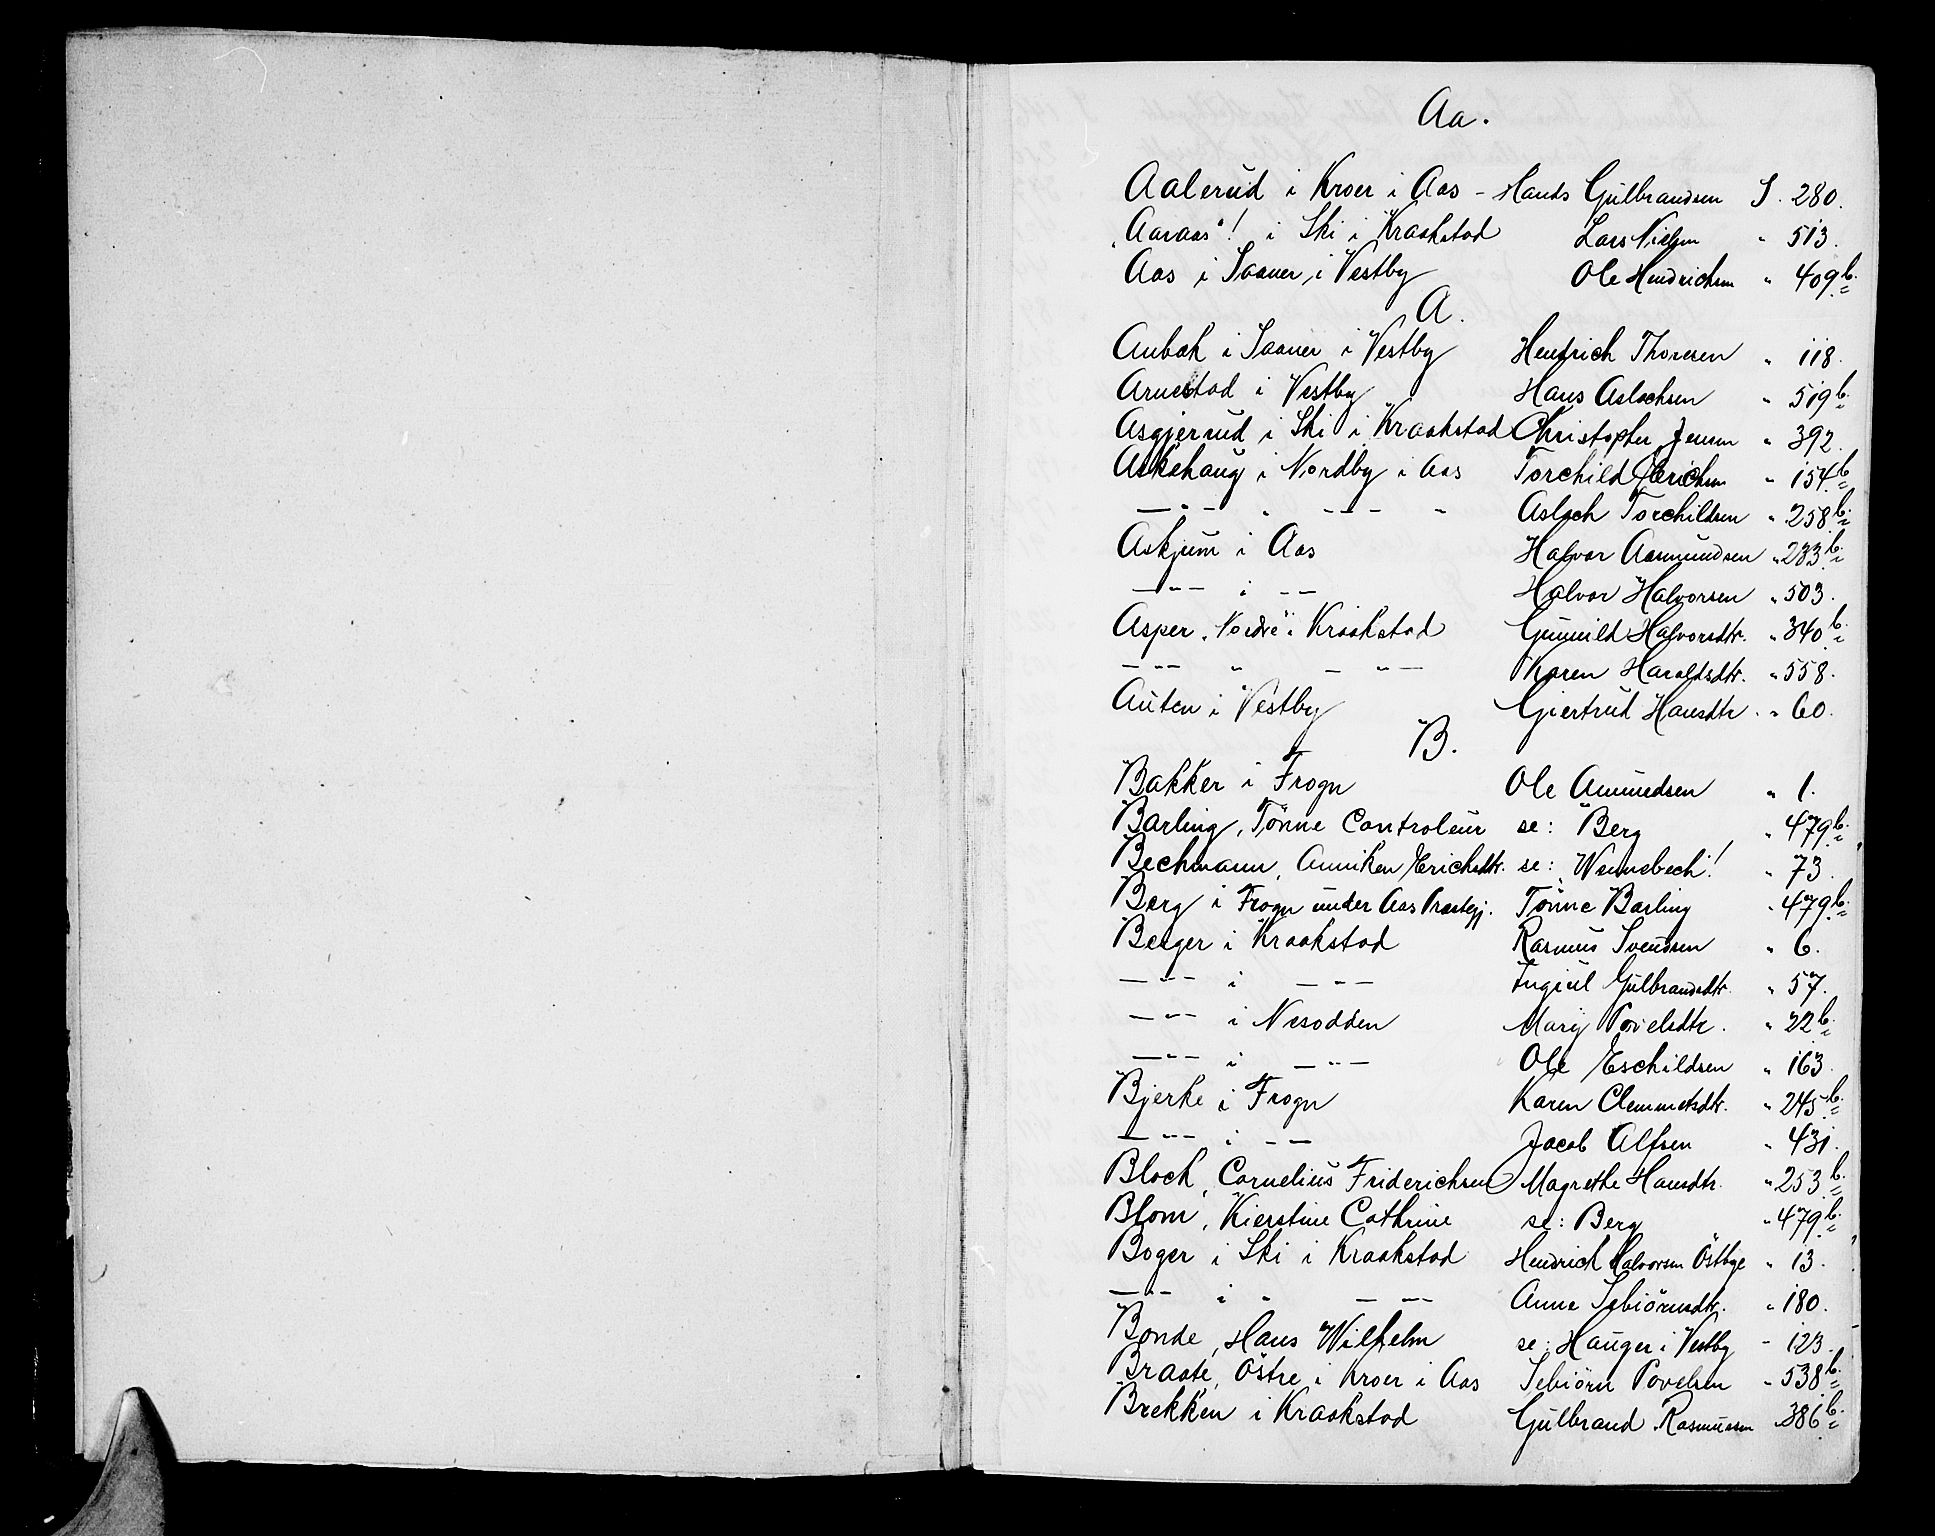 Aa.
Aalerud i Kroer i Aas - Hans Gulbrandsen S. 280.
"Aaraas"! i Ski i Kraakstad Lars Nielsen " 513.
Aas i Saaner i Vestby Ole Hendrichsen " 409 b.
A.
Anbæk i Saaner i Vestby Hendrich Thoresen " 118.
Arnestad i Vestby Hans Aslachsen " 519 b.
Asgjerrud i Ski i Kraakstad Christopher Jensen " 392.
Askehaug i Nordby i Aas Torchild Erichsen " 154 b.
—"— " —-- " Aslach Torchildsen " 258 b.
Askjum i Aas Halvor Aasmundsen " 233 b.
—"— i -- Halvor Halvorsen " 503.
Asper, "Nordre" i Kraakstad Gunnild Halvorsdtr. " 340 b.
—"— " — "— Karen Haraldsdtr. " 558.
Auten i Vestby Giertrud Hansdtr. " 60.
B.
Bakker i Frogn Ole Amundsen " 1.
Barling, Tönne Controleur se: Berg " 479 b.
Bechmann, Anniken Erichsdtr. se: Wennebech! " 73.
Berg i Frogn under Aas Præstegj. Tönne Barling " 479 b.
Berger i Kraakstad Rasmus Svendsen " 6.
—"— i —"— Ingiul Gulbrandsdtr. " 57.
—"— i Nesodden Mari Povelsdtr. " 22 b.
—"— i —"— Ole Eschildsen " 163.
Bjerke i Frogn Karen Clemmetsdtr. " 245 b.
—"— i -- Jacob Alfsen " 431.
Bloch, Cornelius Friderichsen Magrethe Hansdtr. " 253 b.
Blom, Kierstine Cathrine se: Berg " 479 b.
Boger i Ski i Kraakstad Hendrich Halvorsen Östbye " 13.
—"— i " —"— Anne Tebiörnsdtr. " 180.
Bonde, Hans Wilhelm se: Hauger i Vestby - 123.
Braate, Östre i Kroer i Aas Tebiörn Povelsen " 538 b.
Brekken i Kraakstad Gulbrand Rasmussen " 386 b.